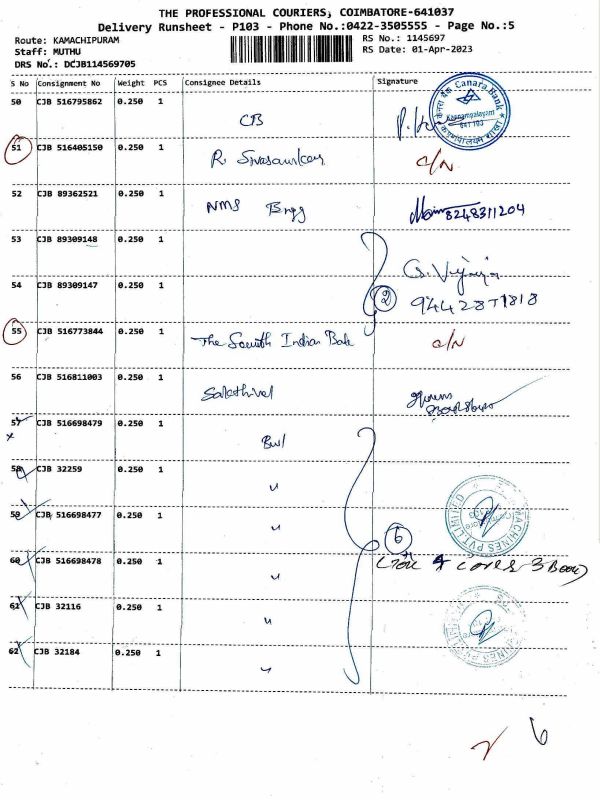 THE PROFESSIONAL COURIERS, COIMBATORE-641037
Delivery Runsheet - P103 - Phone No.:0422-3505555 - Page No.:5
Route: KAMACHIPURAM RS No.: 1145697
Staff: MUTHU RS Date: 01-Apr-2023
DRS No.: DCJB114569705
S No Consignment No Weight PCS Consignee Details Signature
50 CJB 516795862 0.250 1 CB
Canara Bank
51 CJB 516405150 0.250 1 R. Sivasankar C/N
52 CJB 89362521 0.250 1 NMS Engg 8248311204
53 CJB 89309148 0.250 1
G. Vijaya
54 CJB 89309147 0.250 1 2 9442871818
55 CJB 516773844 0.250 1 The South Indian Bank C/N
56 CJB 516811003 0.250 1 Sakthivel
57 CJB 516698479 0.250 1 Bull
58 CJB 32259 0.250 1 "
59 CJB 516698477 0.250 1 "
MACHINES PVT LIMITED
6
60 CJB 516698478 0.250 1 " 4 Cover 3 Book
61 CJB 32116 0.250 1 "
62 CJB 32184 0.250 1 "
6